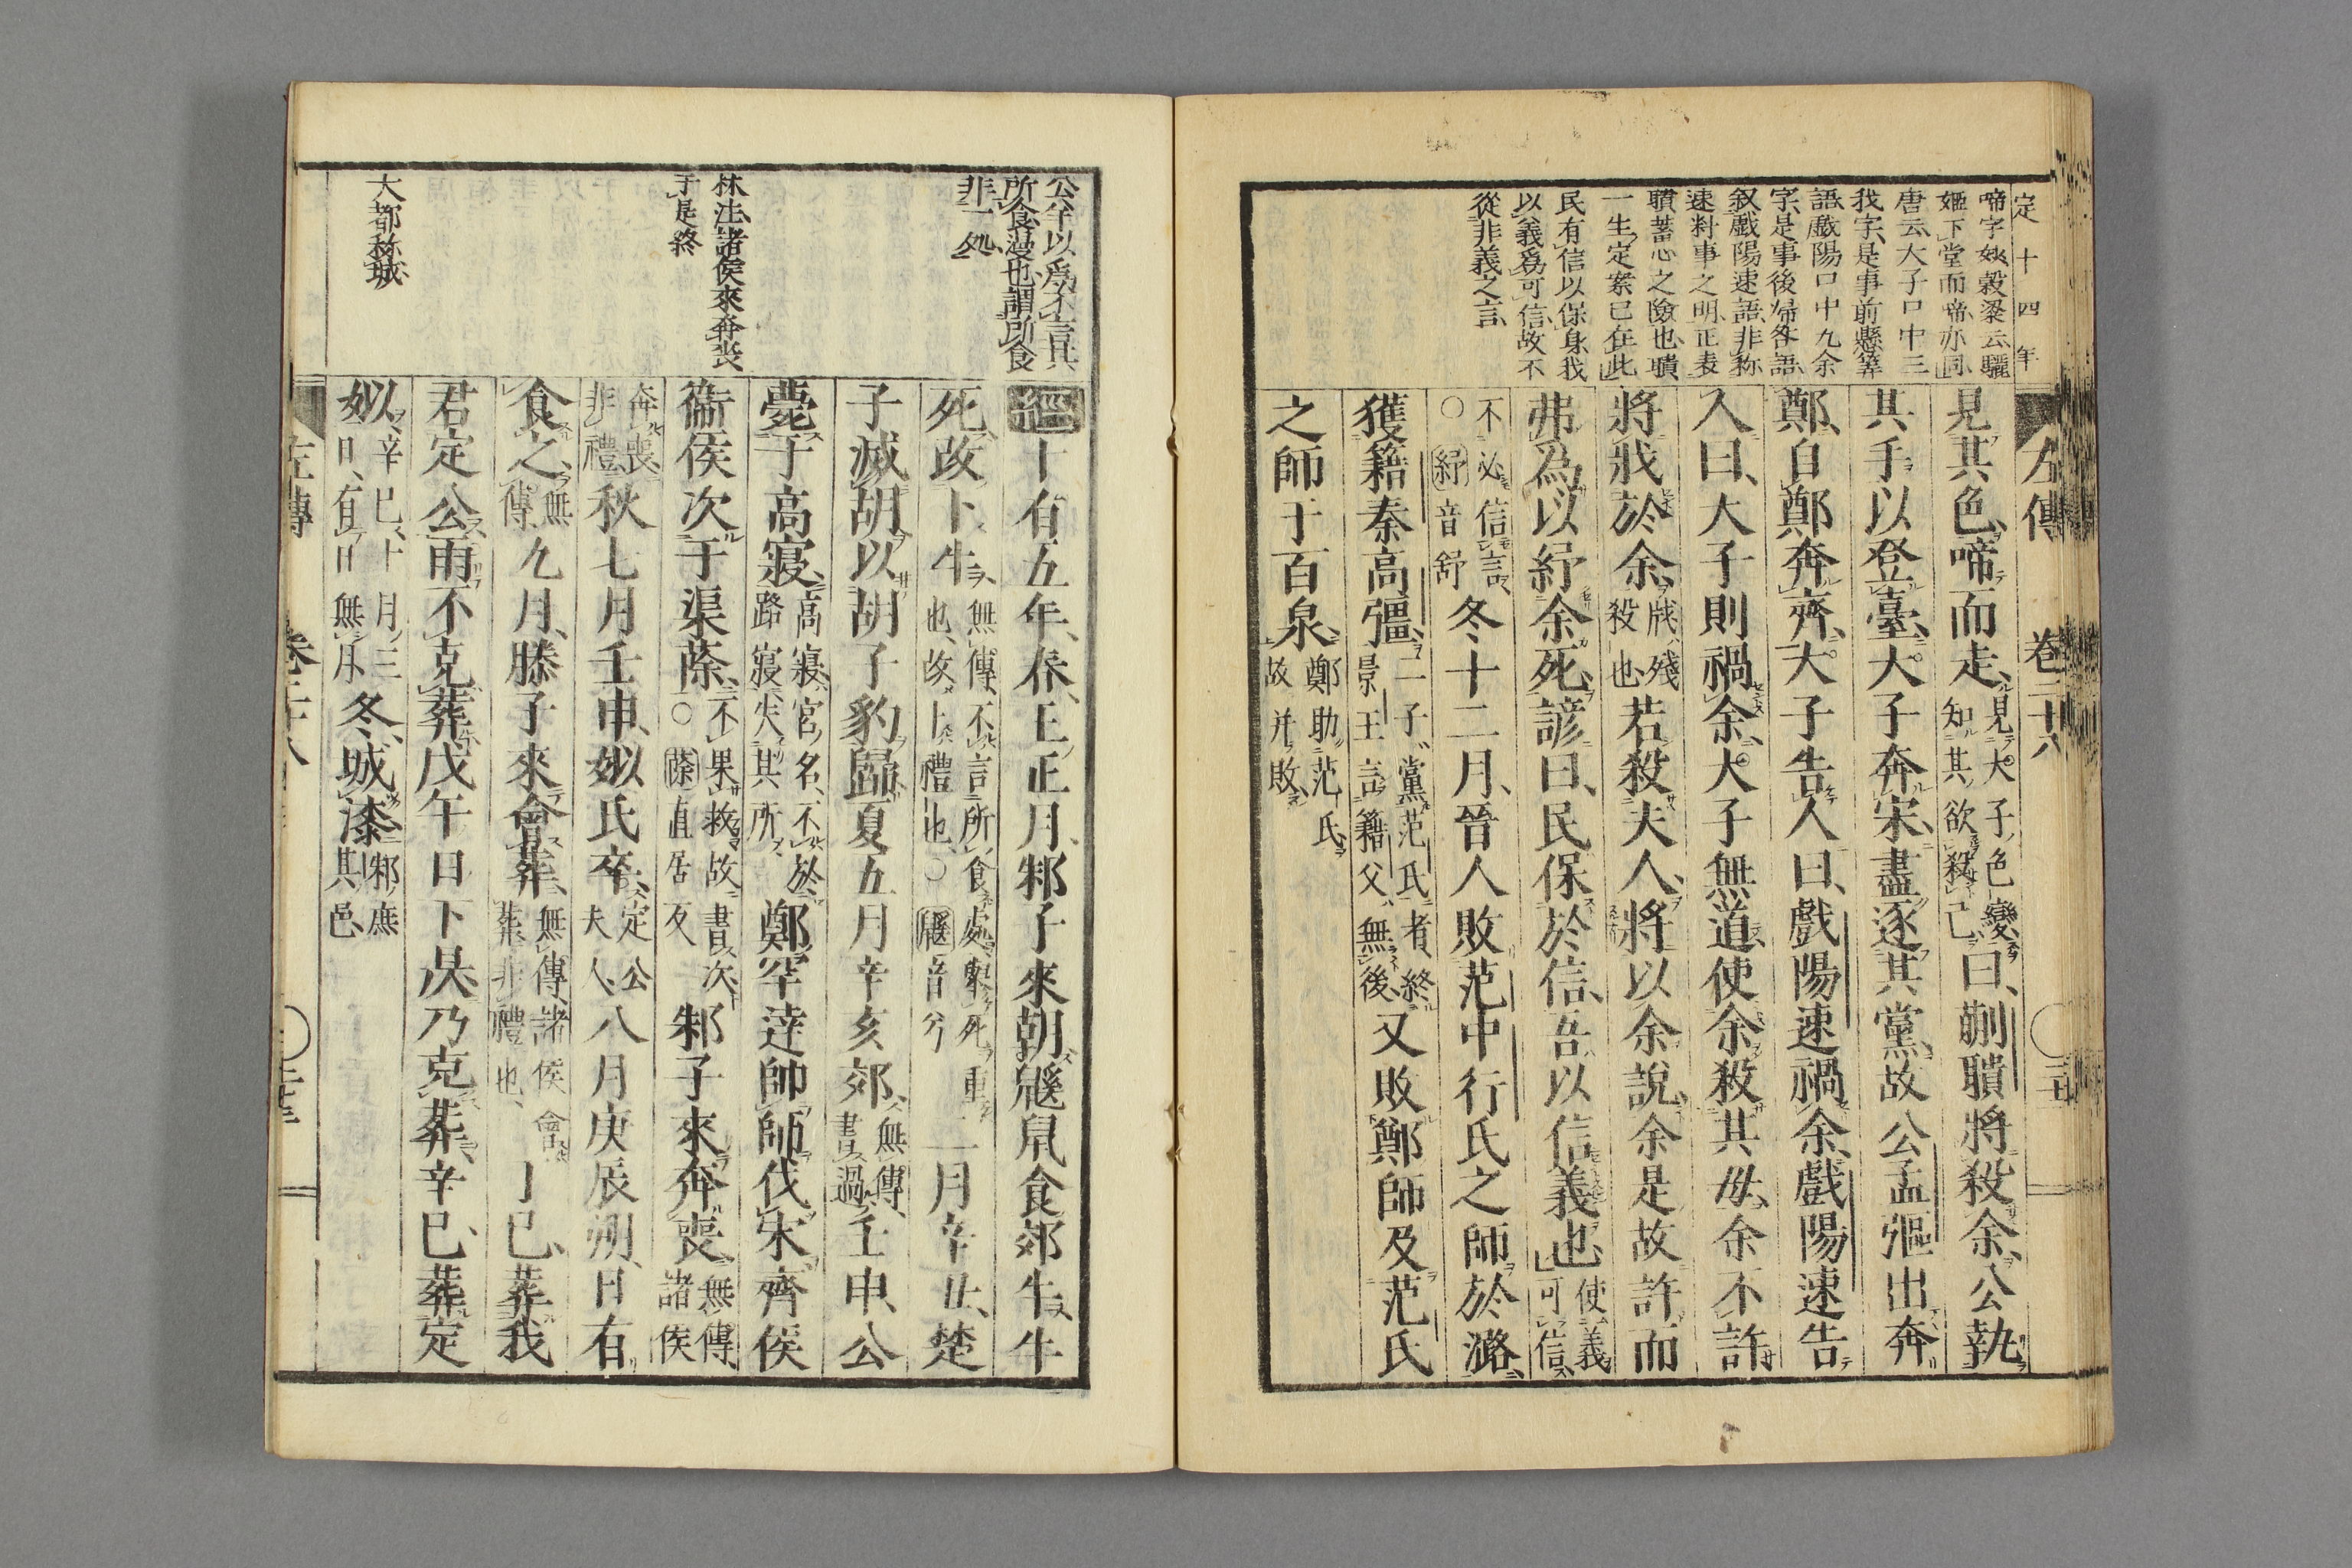 定十四年
啼字妙、穀梁云驪
姬下堂而啼、亦同、
唐云大子口中三
我字、是事前懸筭
語、戲陽口中九余
字、是事後婦咎語、
叙戲陽速語、非称
速料事之明、正表
聵蓄心之險也、聵
一生定案已在此
民有信以保身、我
以義爲可信、故不
從非義之言、
左傳 卷二十八
見其色、啼而走、見大子色變、知其欲殺己、曰、蒯聵將殺余、公執
其手以登臺、大子奔宋、盡逐其黨、故公孟彄出奔
鄭、自鄭奔齊、大子告人曰、戲陽速禍余、戲陽速告
人曰、大子則禍余、大子無道、使余殺其母、余不許
將戕於余、戕、殘殺也、若殺夫人、將以余說、余是故許而
弗為、以紓余死、諺曰、民保於信、吾以信義也、使義可信、
不必信言、○紓音舒冬十二月、晉人敗范中行氏之師於潞、
獲籍秦高彊、二子黨范氏者、終景王言、籍父無後、又敗鄭師及范氏
之師于百泉、鄭助范氏、故并敗、
公羊以爲不言其
所食漫也、謂所食
非一処、
林注、諸侯來奔喪
于是終
大都称城、
經十有五年、春、王正月、邾子來朝、鼷鼠食郊牛、牛
死、改卜牛、無傳、不言所食處、舉死重也、改卜、禮也、○鼷音兮二月辛丑、楚
子滅胡、以胡子豹歸、夏五月辛亥郊、無傳、書過、壬申、公
薨于高寢、高寢、宮名、不於路寢、失其所、鄭罕達帥師伐宋、齊侯
衞侯次于渠蒢、不果救、故書次、○蒢直居反邾子來奔喪、無傳、諸侯
奔喪、非禮、秋七月壬申、姒氏卒、定公夫人、八月庚辰朔、日有
食之、無傳、九月、滕子來會葬、無傳、諸侯會葬、非禮也、丁巳、葬我
君定公、雨不克葬、戊午日下昃、乃克葬、辛巳、葬定
姒、辛巳、十月三日、有日無月、冬、城漆、邾庶其邑、
左傳 卷二十八